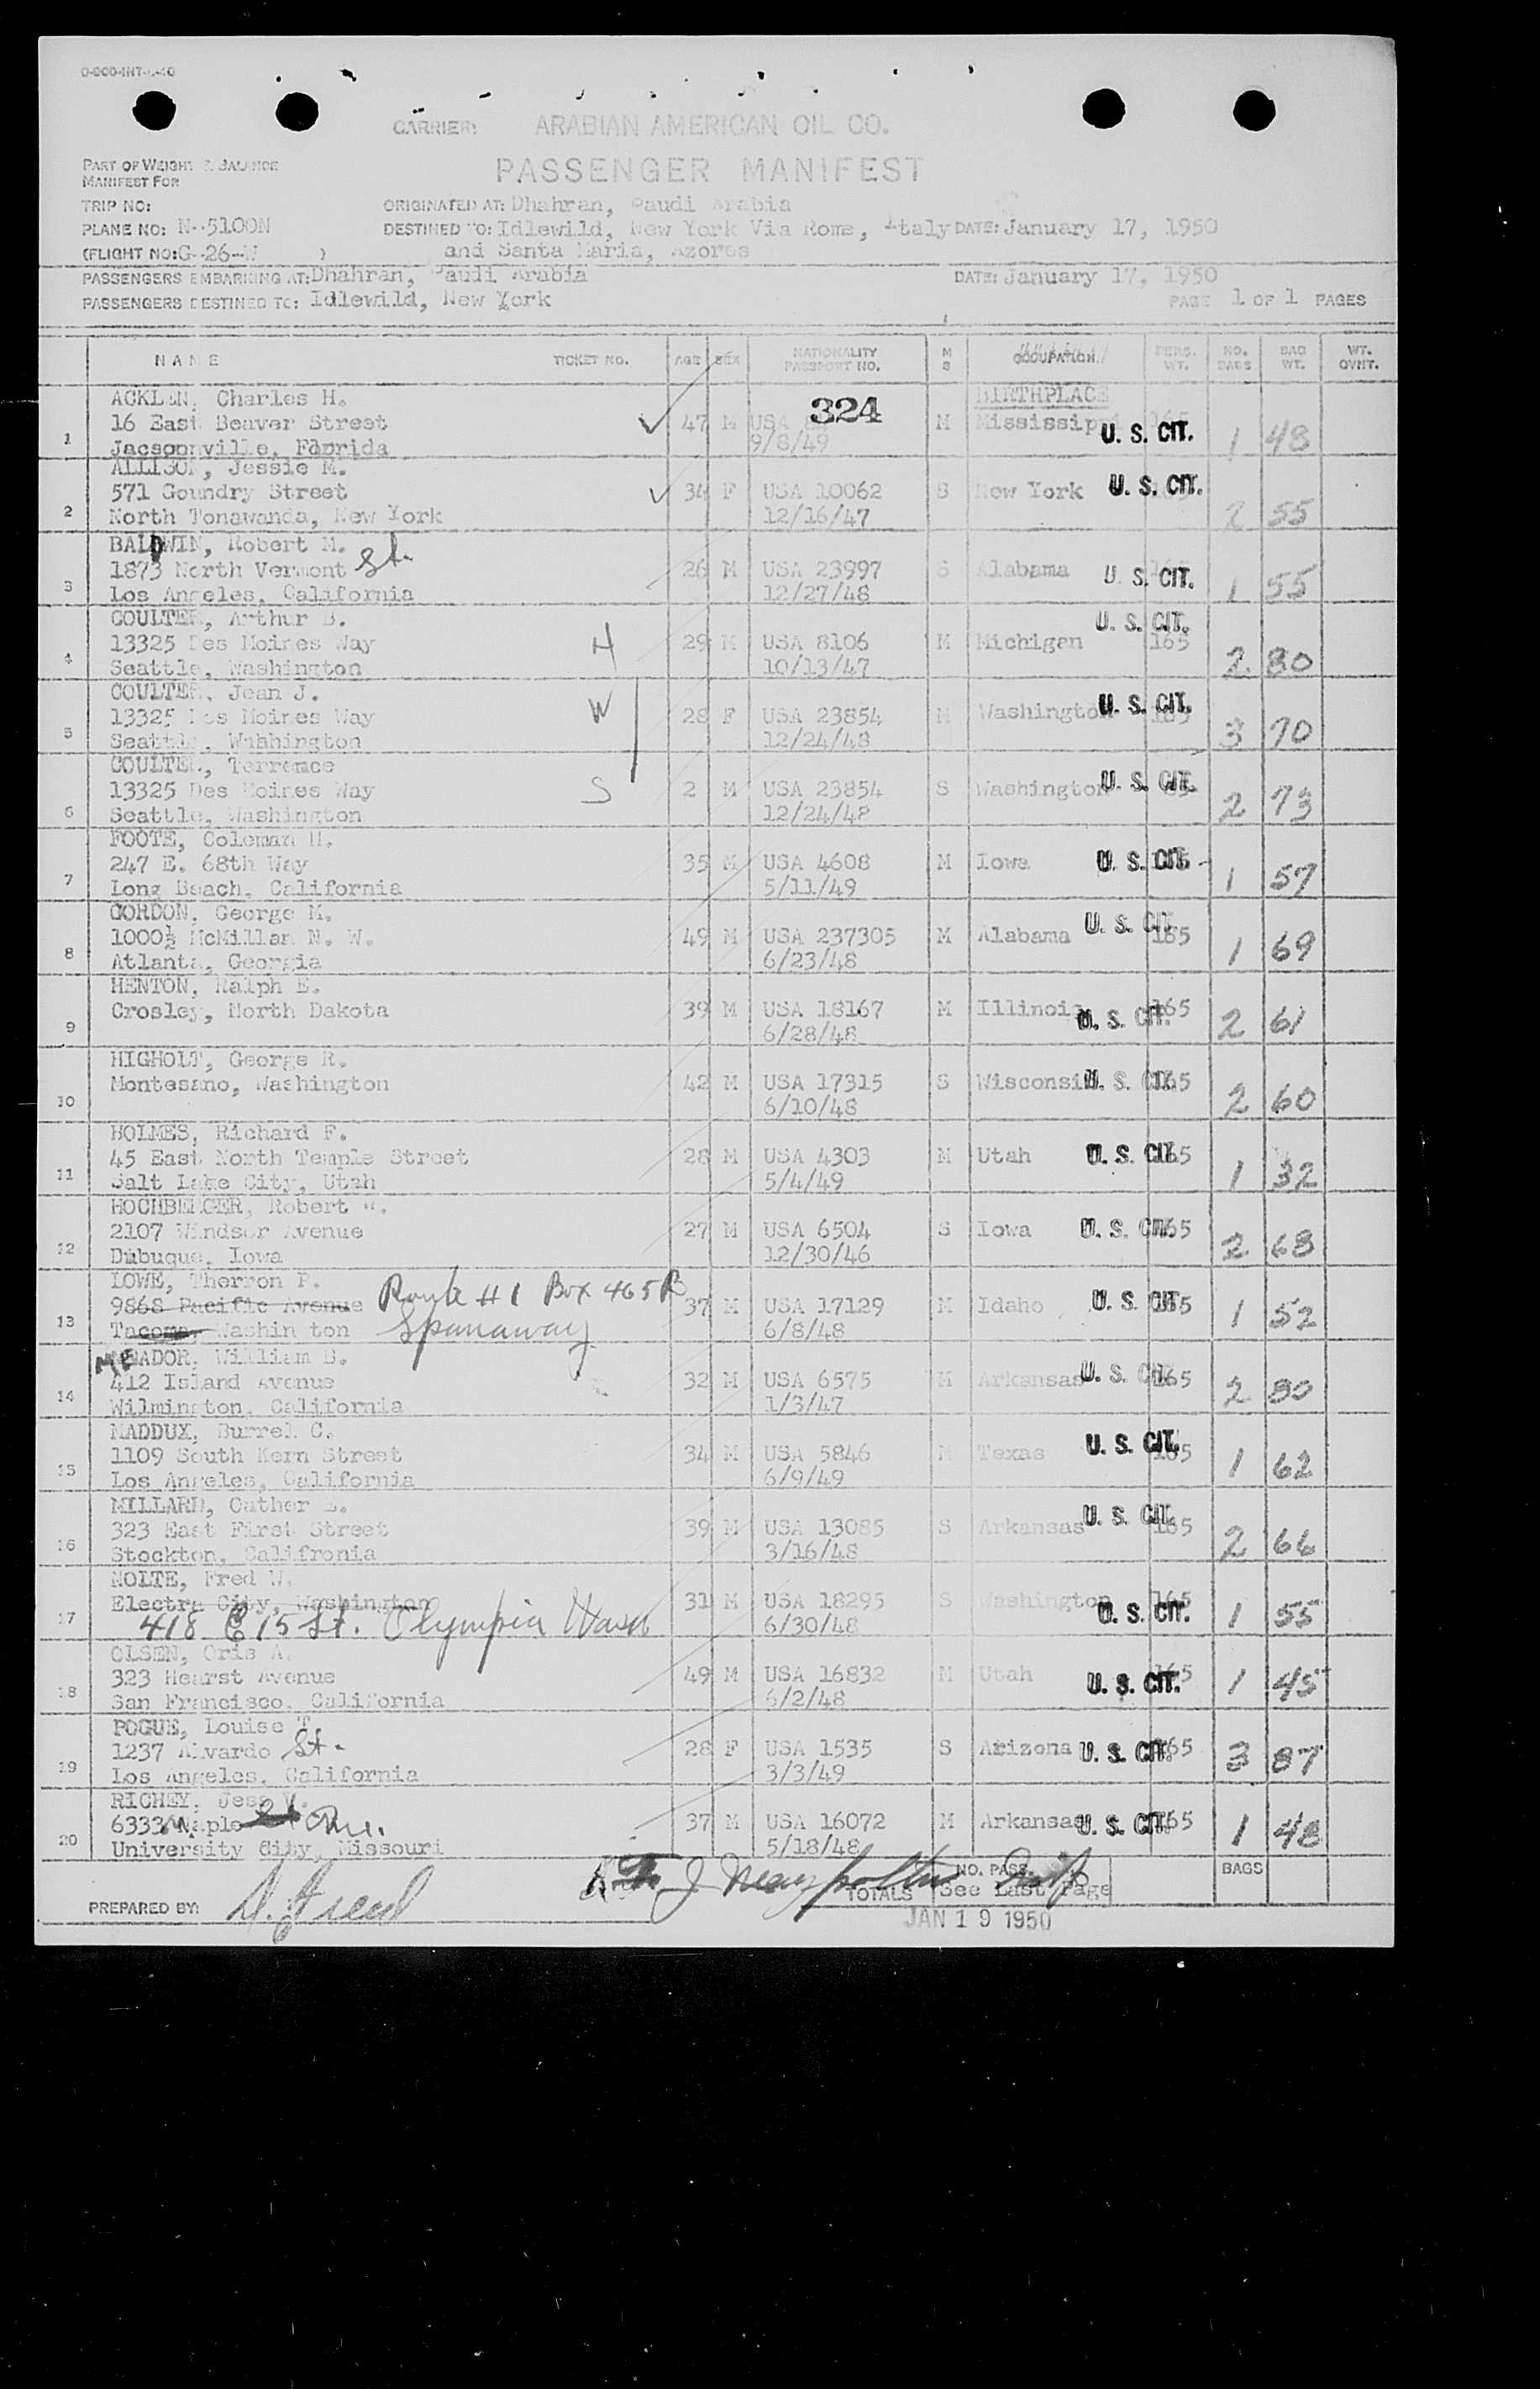 CARRIER: ARABIAN AMERICAN OIL CO.
PASSENGER MANIFEST
PART OF WEIGHT & BALANCE
MANIFEST FOR
TRIP NO: ORIGINATED AT: Dhahran, Saudi Arabia
PLANE NO: N-5100N DESTINED TO: Idlewild, New York Via Rome, Italy DATE: January 17, 1950
(FLIGHT NO: G-26-N ) and Santa Maria, Azores
PASSENGERS EMBARKING AT: Dhahran, Saudi Arabia DATE: January 17, 1950
PASSENGERS DESTINED TO: Idlewild, New York PAGE 1 OF 1 PAGES
NAME TICKET NO. AGE SEX NATIONALITY PASSPORT NO. M S OCCUPATION PERS. WT. NO. BAGS BAG WT. WT. OVHT.
ACKLEN, Charles H. 324 BIRTHPLACE
1 16 East Beaver Street 47 M USA M Mississippi 165 U. S. CIT. 1 48
Jacsonnville, Florida 9/8/49
ALLISON, Jessie M.
2 571 Goundry Street 34 F USA 10062 S New York U. S. CIT. 2 55
North Tonawanda, New York 12/16/47
BALDWIN, Robert M.
3 1873 North Vermont St. 26 M USA 23997 S Alabama U. S. CIT. 1 55
Los Angeles, California 12/27/48
COULTER, Arthur B. U. S. CIT.
4 13325 Des Moines Way H 29 M USA 8106 M Michigan 165 2 80
Seattle, Washington 10/13/47
COULTER, Jean J.
5 13325 Des Moines Way W 28 F USA 23854 M Washington U. S. CIT. 3 70
Seattle, Wahhington 12/24/48
COULTER, Terrence
6 13325 Des Moines Way S 2 M USA 23854 S Washington U. S. CIT. 2 73
Seattle, Washington 12/24/48
FOOTE, Coleman
7 247 E. 68th Way 35 M USA 4608 M Iowa U. S. CIT. 1 57
Long Beach, California 5/11/49
GORDON, George M.
8 1000½ McMillan N. W. 49 M USA 237305 M Alabama U. S. CIT. 165 1 69
Atlanta, Georgia 6/23/48
HENTON, Ralph E.
9 Crosley, North Dakota 39 M USA 18167 M Illinois U. S. CIT. 165 2 61
6/28/48
HIGHOLT, George R.
10 Montesano, Washington 42 M USA 17315 S Wisconsin U. S. CIT. 165 2 60
6/10/48
HOLMES, Richard F.
11 45 East North Temple Street 28 M USA 4303 M Utah U. S. CIT. 165 1 32
Salt Lake City, Utah 5/4/49
HOCHBERGER, Robert
12 2107 Windsor Avenue 27 M USA 6504 S Iowa U. S. CIT. 165 2 68
Dubuque, Iowa 12/30/46
LOWE, Therron P.
13 9868 Pacific Avenue Route #1 Box 465B 37 M USA 17129 M Idaho U. S. CIT. 165 1 52
Tacoma, Washin ton Spanaway 6/8/48
MEADOR, William B.
14 412 Island Avenue 32 M USA 6575 M Arkansas U. S. CIT. 165 2 80
Wilmington, California 1/3/47
MADDUX, Burrel C.
15 1109 South Kern Street 34 M USA 5846 M Texas U. S. CIT. 165 1 62
Los Angeles, California 6/9/49
MILLARD, Cather E.
16 323 East First Street 39 M USA 13085 S Arkansas U. S. CIT. 165 2 66
Stockton, Califronia 3/16/48
NOLTE, Fred W.
17 Electra City, Washington 31 M USA 18295 S Washington 165 U. S. CIT. 1 55
418 E 15 St. Olympia Wash 6/30/48
OLSEN, Oris A.
18 323 Hearst Avenue 49 M USA 16832 M Utah 165 U. S. CIT. 1 45
San Francisco, California 6/2/48
POGUE, Louise T.
19 1237 Alvardo St. 28 F USA 1535 S Arizona U. S. CIT. 165 3 87
Los Angeles, California 3/3/49
RICHEY, Jess V.
20 6333 Maple Ave. 37 M USA 16072 M Arkansas U. S. CIT. 165 1 48
University City, Missouri 5/18/48
NO. PASS. BAGS
PREPARED BY: TOTALS See Last Page
JAN 19 1950